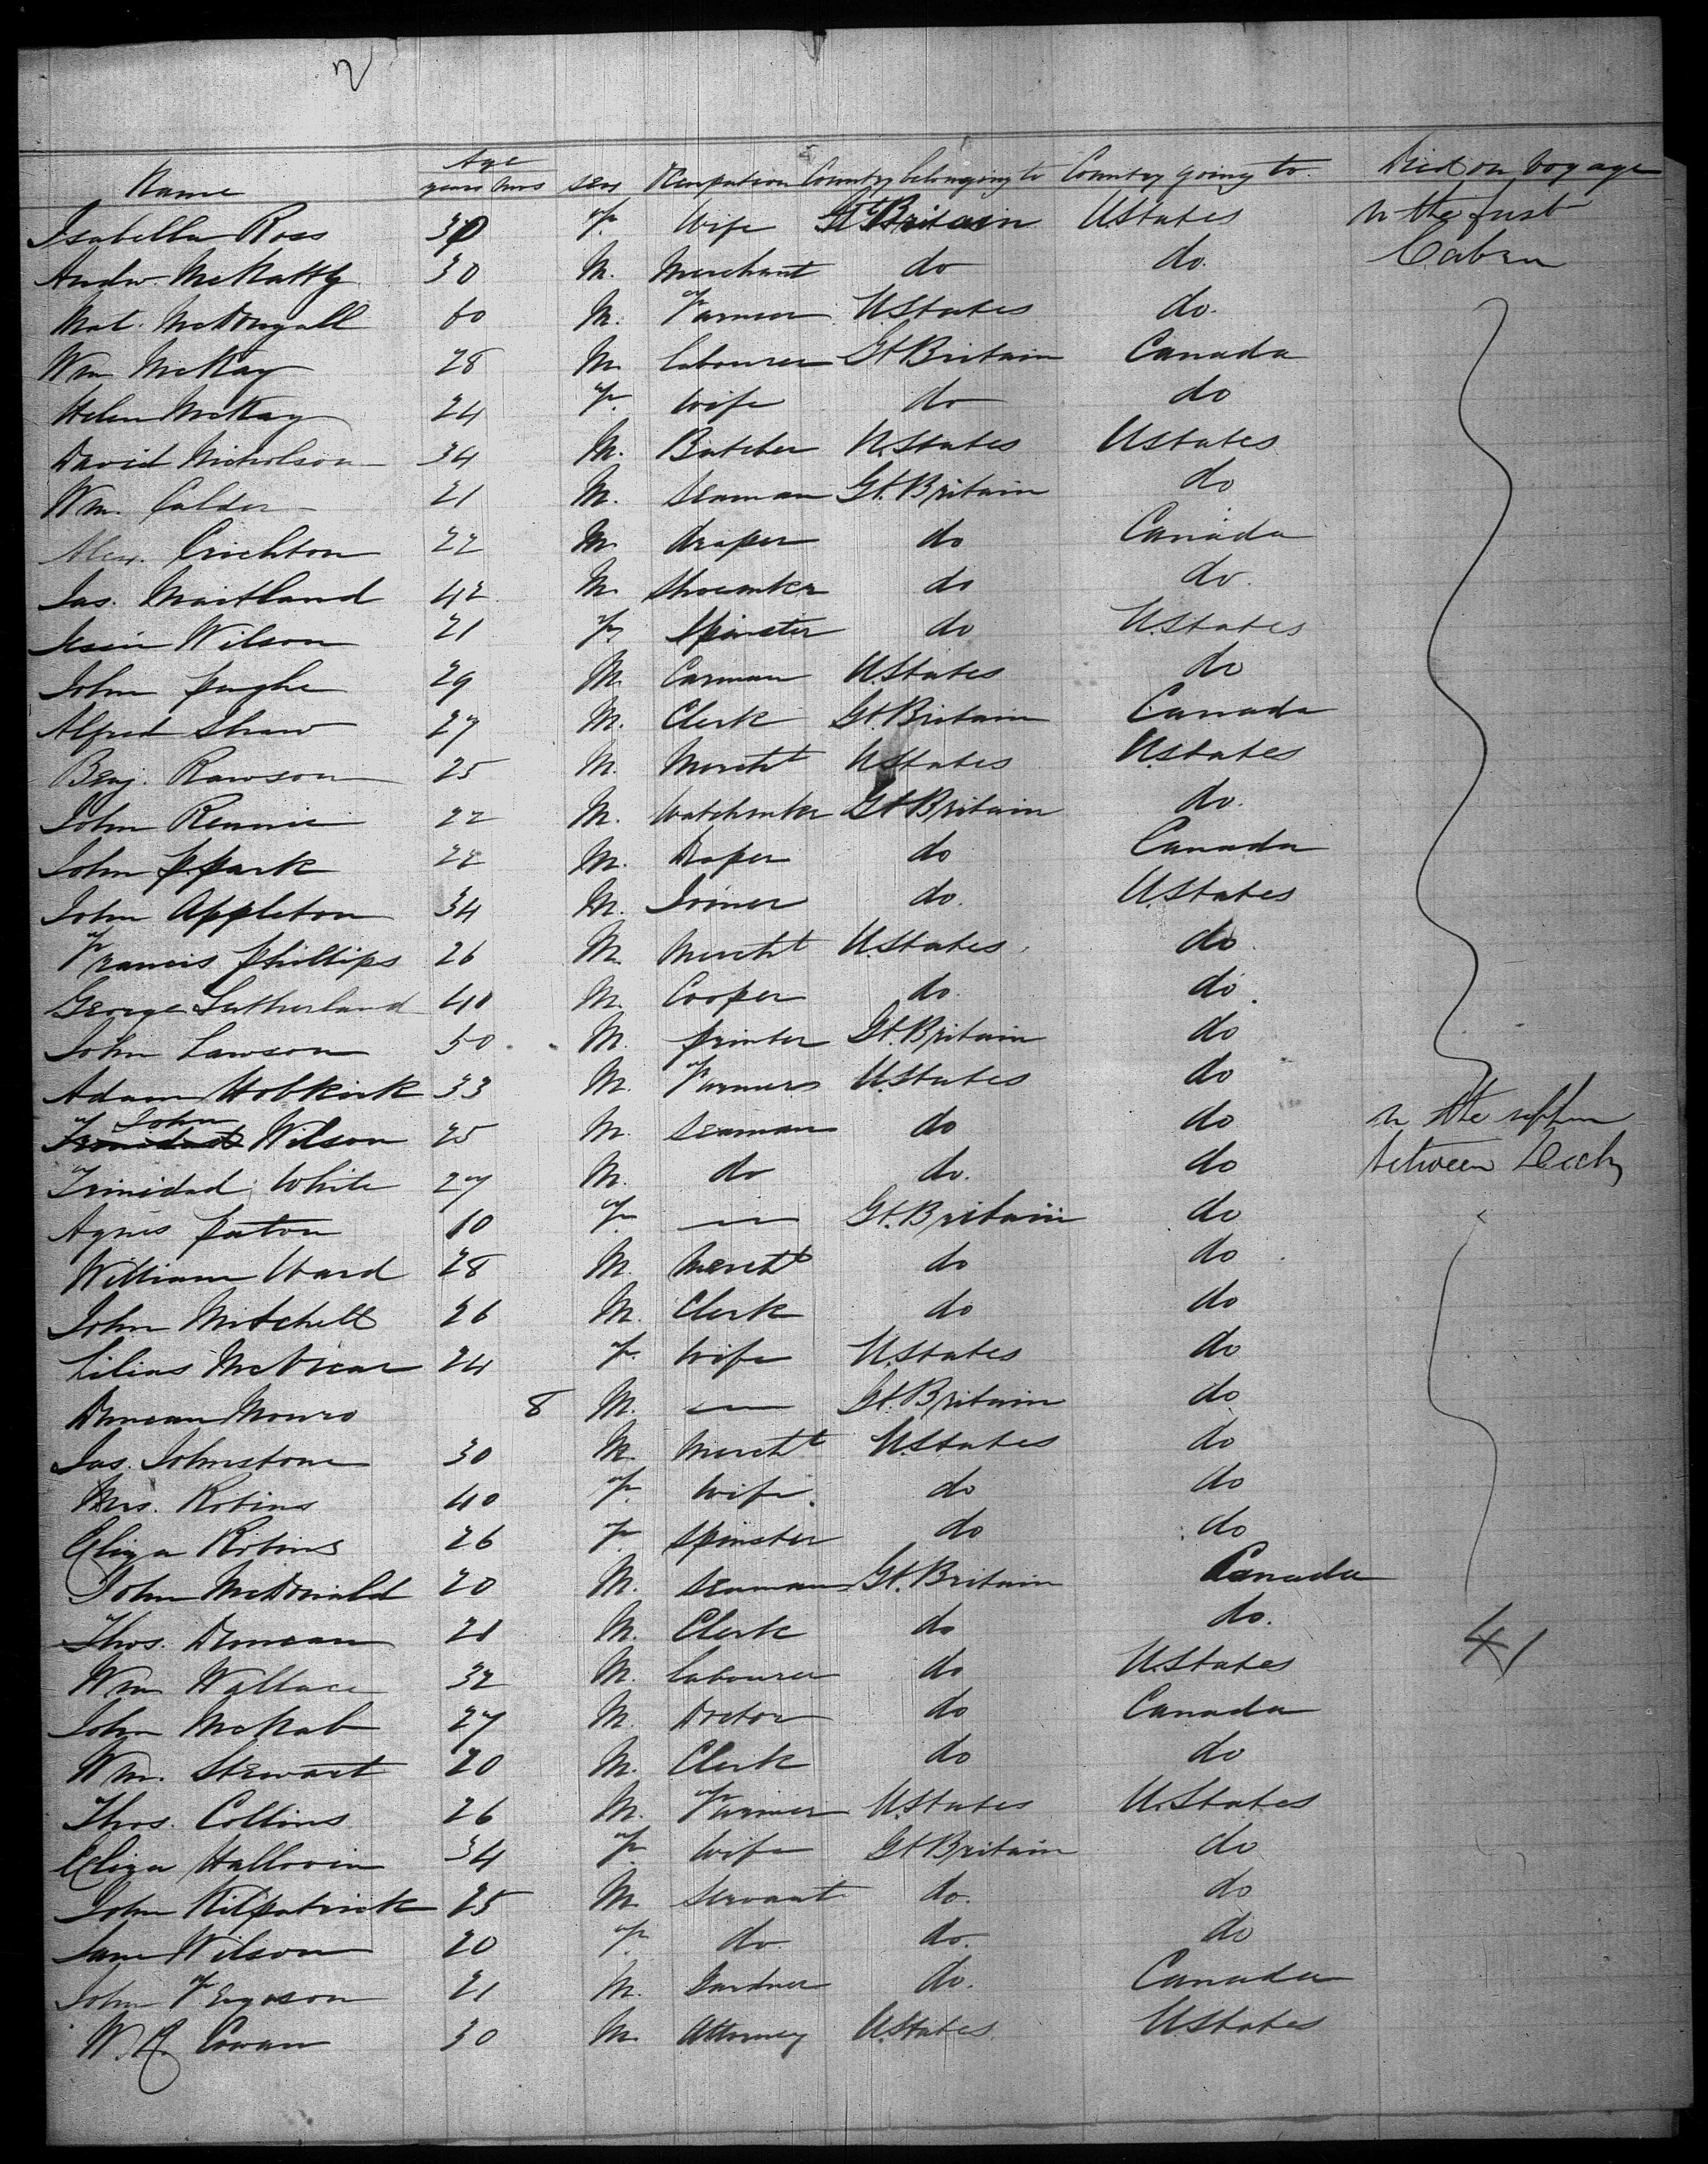 2
Age
Name years mos sex Occupation Country belonging to Country going to Died on Voyage
Isabella Ross 30 F. Wife Gt Britain U.States In the first
Andw. McNatty 30 M. Merchant do do. Cabin
Mal. McDougall 60 M. Farmer U.States do.
Wm McKay 28 M. Labourer Gt Britain Canada
Helen McKay 24 F. Wife do do
David Nicholson 34 M. Butcher U.States U.States
Wm. Calder 21 M. Seaman Gt. Britain do
Alex. Crichton 22 M. draper do Canada
Jas. Maitland 42 M. Shoemker do do.
Jessie Wilson 21 F. Spinster do U.States
John Pughe 29 M. Carman U.States do
Alfred Shaw 27 M. Clerk Gt. Britain Canada
Benj. Rawson 25 M. Mercht U.States U.States
John Rennie 22 M. Watchmker Gt Britain do.
John P. Park 22 M. Draper do Canada
John Appleton 34 M. Joiner do. U.States
Francis Phillips 26 M. Mercht U.States do
George Sutherland 40 M. Cooper do. do.
John Lawson 50 M. Printer Gt. Britain do
Adam Hobkirk 33 M. Farmer U.States do
John
Trinidad Wilson 25 M. Seaman do do In the
Trinidad White 27 M. do do. do between Decks
Agnes Paton 10 F. — Gt. Britain do
William Ward 28 M. Mercht do do
John Mitchell 26 M. Clerk do do
Lilias McVicar 24 F. Wife U.States do
Duncan Monro 8 M. — Gt. Britain do
Jas. Johnstone 30 M. Mercht U.States do
Mrs. Robins 40 F. Wife do do
Eliza Robins 26 F. Spinster do do
John McDonald 20 M. Seaman Gt. Britain Canada
Thos. Duncan 21 M. Clerk do do.
Wm Wallace 32 M. Labourer do U.States 41
John McNab 27 M. Doctor do Canada
Wm. Stewart 20 M. Clerk do do
Thos. Collins 26 M. Farmer U.States U.States
Eliza Halloran 34 F. Wife Gt Britain do
John Kilpatrick 25 M. Servant do. do
Jane Wilson 20 F. do. do. do
John Ferguson 21 M. Gardner do. Canada
W. A. Cowan 30 M. Attorney U.States U.States